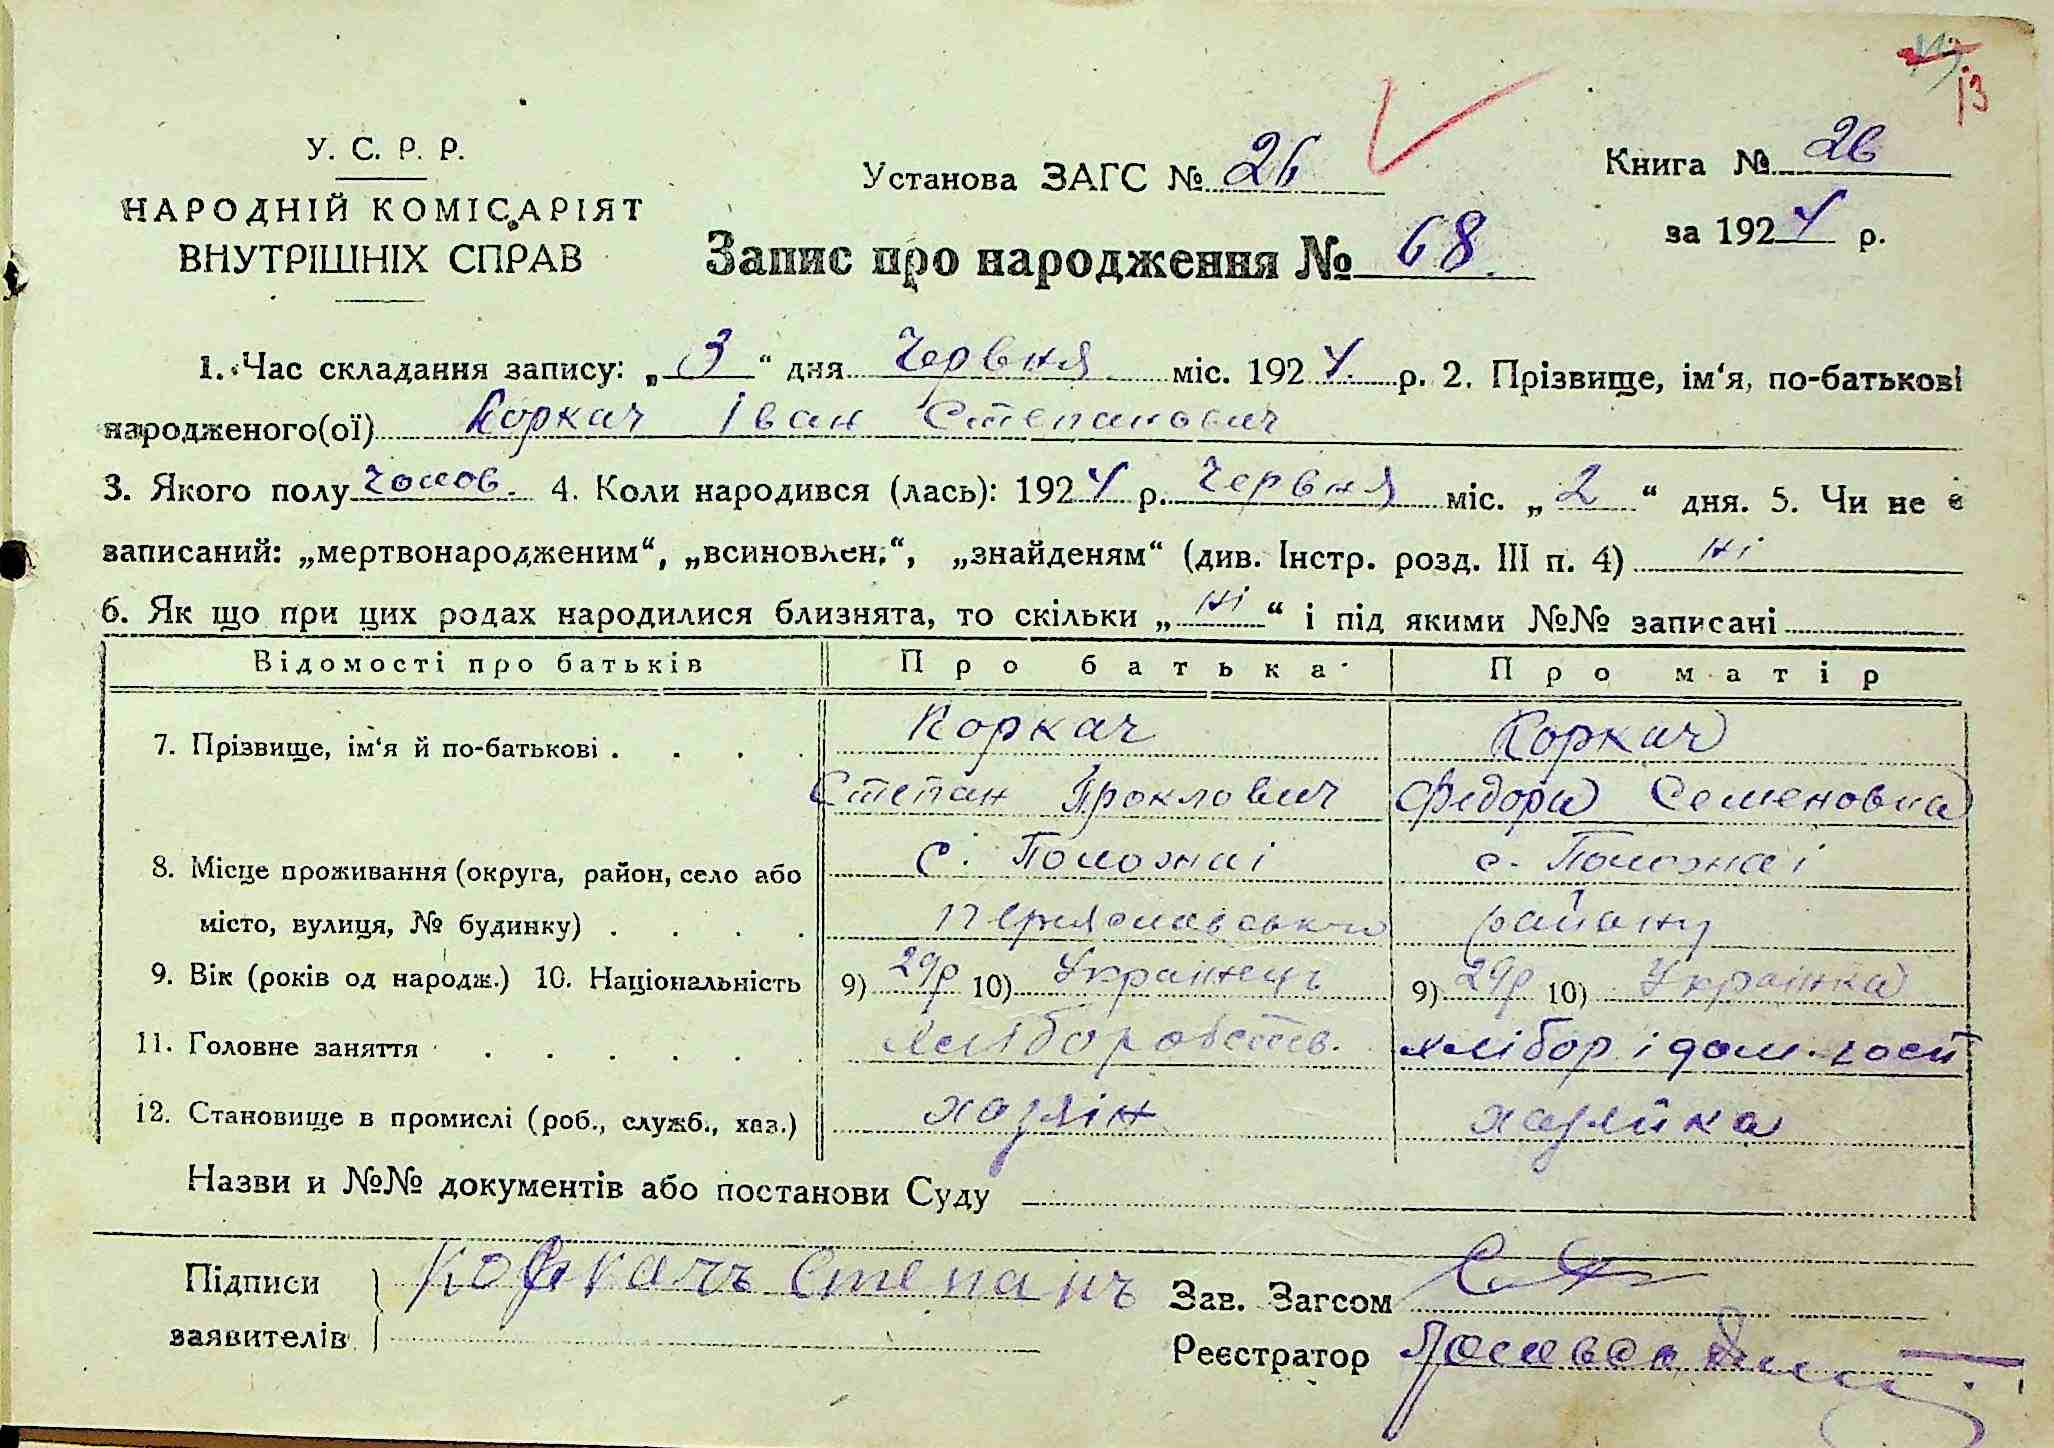 13
У. С. Р. Р.
НАРОДНІЙ КОМІСАРІЯТ
ВНУТРІШНІХ СПРАВ
Установа ЗАГС № 26
Книга № 26
за 1924 р.
Запис про народження № 68.
1. Час складання запису: „3“ дня Червня міс. 1924. р. 2. Прізвище, ім‘я, по-батькові
народженого(ої) Коркач Іван Степанович
3. Якого полу чолов. 4. Коли народився (лась): 1924 р. Червня міс. „2“ дня. 5. Чи не є
записаний: „мертвонародженим“, „всиновлен.“, „знайденям“ (див. Інстр. розд. III п. 4) ні
6. Як що при цих родах народилися близнята, то скільки „ні“ і під якими №№ записані
Відомості про батьків Про батька Про матір
7. Прізвище, ім‘я й по-батькові . . . . Коркач Коркач
Степан Проклович Федора Семеновна
8. Місце проживання (округа, район, село або с. Положаі с. Положаі
місто, вулиця, № будинку) . . . . Переяславського району
9. Вік (років од народж.) 10. Національність 9) 29р 10) Українець 9) 29р 10) Українка
11. Головне заняття . . . . . . хліборобств. хлібор і дом. госп
12. Становище в промислі (роб., служб., хаз.) хазяін хазяйка
Назви и №№ документів або постанови Суду
Підписи Коркачъ Степанъ Зав. Загсом
заявителів Реєстратор